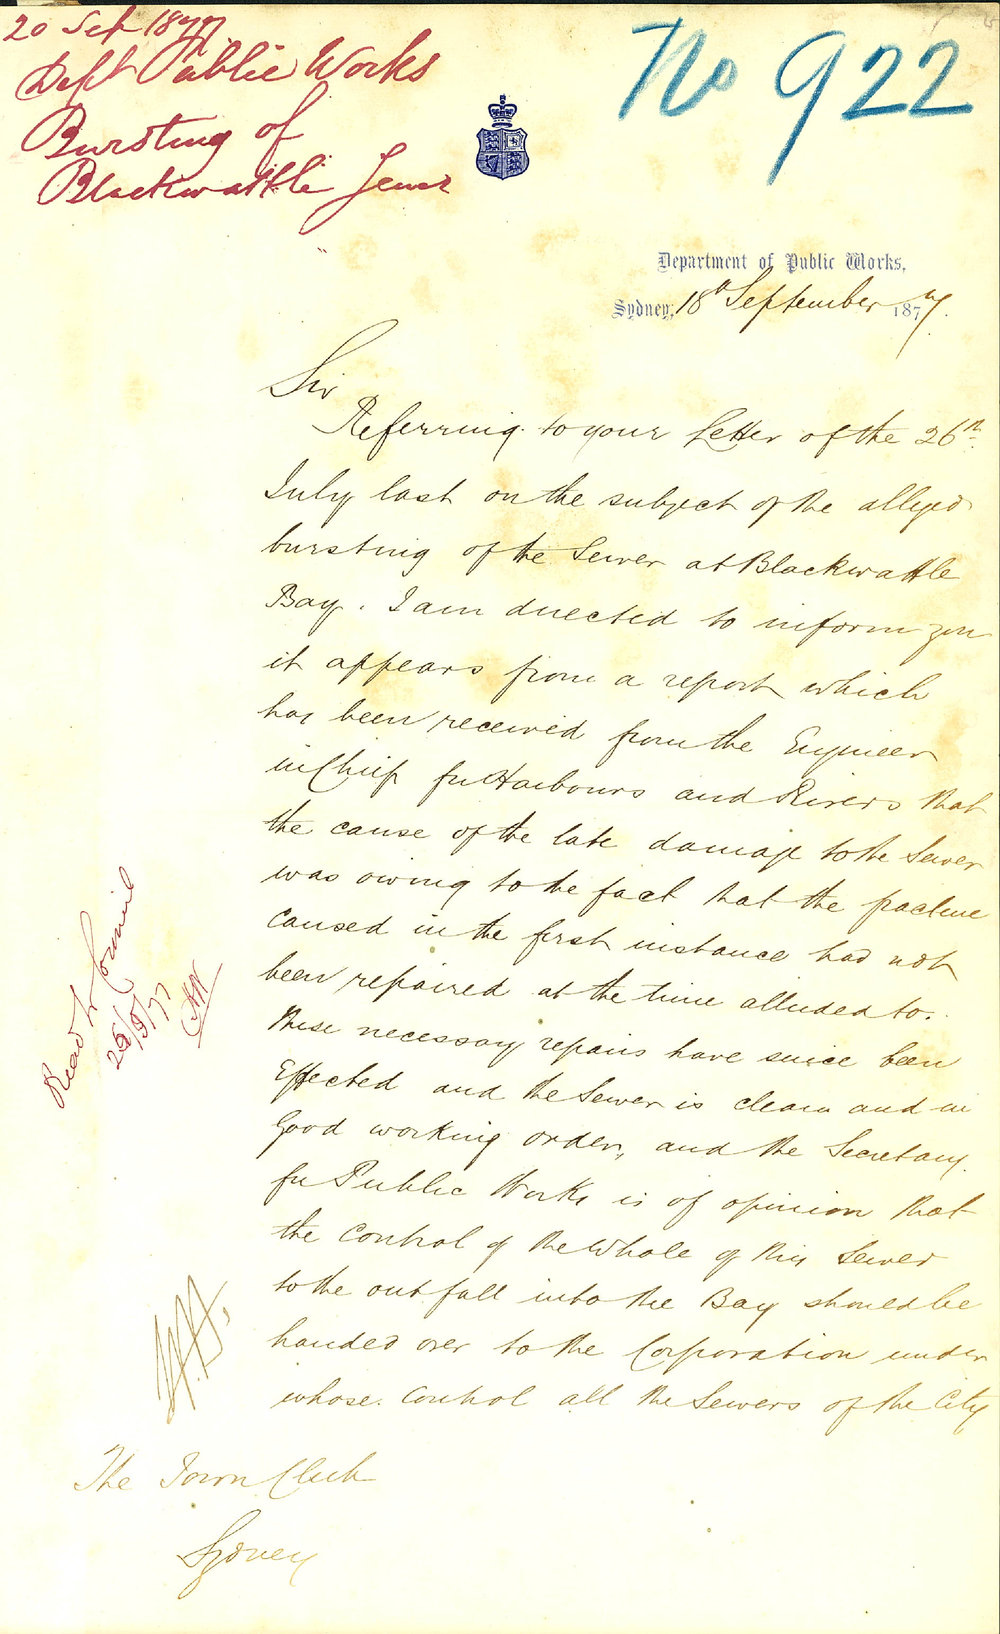 20 Sep 1877
Dept Public Works
Bursting of
Blackwattle Sewer
No 922
Department of Public Works,
Sydney, 18th September 1877.
Sir
Referring to your Letter of the 26th
July last on the subject of the alleged
bursting of the Sewer at Blackwattle
Bay. I am directed to inform you
it appears from a report which
has been received from the Engineer
in Chief for Harbours and Rivers that
the cause of the late damage to the Sewer
was owing to the fact that the fracture
caused in the first instance had not
been repaired at the time alluded to.
These necessary repairs have since been
Effected and the Sewer is clean and in
Good working order, and the Secretary
for Public Works is of opinion that
the Control of the Whole of this Sewer
to the outfall into the Bay should be
handed over to the Corporation under
whose Control all the Sewers of the City
Read to Council
The Town Clerk
Sydney